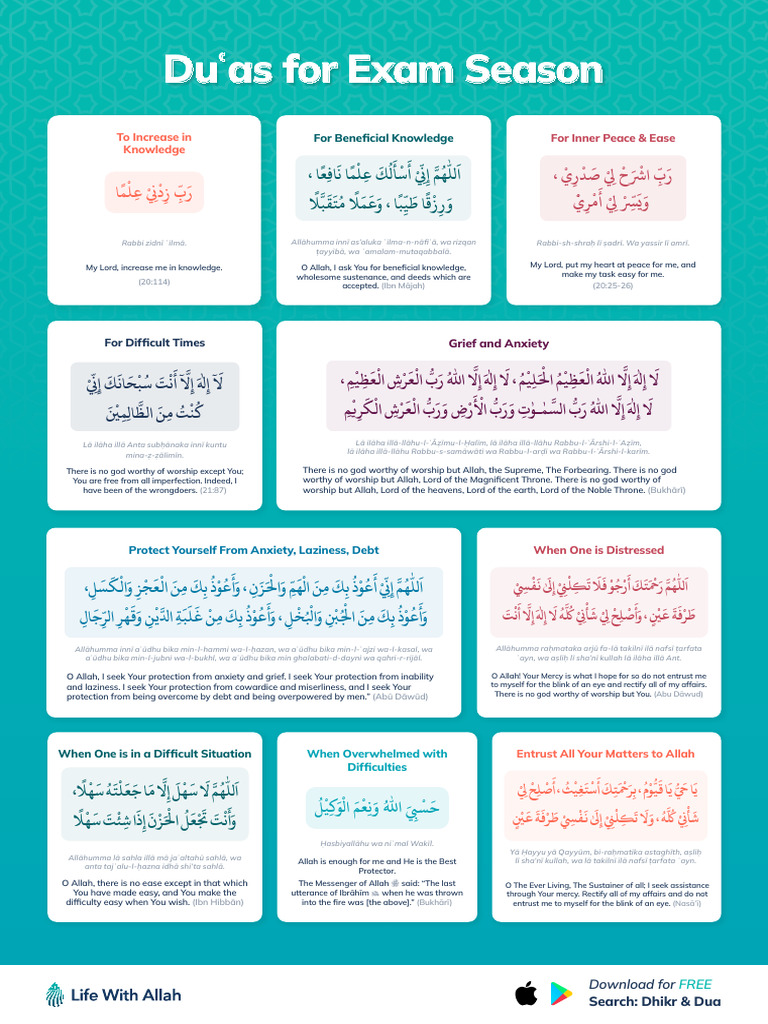 Duʿas for Exam Season
To Increase in
Knowledge
رَبِّ زِدْنِيْ عِلْمًا
Rabbi zidnī ʿilmā.
My Lord, increase me in knowledge.
(20:114)
For Beneficial Knowledge
اَللّٰهُمَّ إِنِّيْ أَسْأَلُكَ عِلْمًا نَافِعًا ،
وَرِزْقًا طَيِّبًا ، وَعَمَلًا مُتَقَبَّلًا
Allāhumma innī as’aluka ʿilma-n-nāfiʿā, wa rizqan
ṭayyibā, wa ʿamalam-mutaqabbalā.
O Allah, I ask You for beneficial knowledge,
wholesome sustenance, and deeds which are
accepted. (Ibn Mājah)
For Inner Peace & Ease
رَبِّ اشْرَحْ لِيْ صَدْرِيْ ،
وَيَسِّرْ لِيْ أَمْرِيْ
Rabbi-sh-shraḥ lī ṣadrī. Wa yassir lī amrī.
My Lord, put my heart at peace for me, and
make my task easy for me.
(20:25-26)
For Difficult Times
لَآ إِلٰهَ إِلَّآ أَنْتَ سُبْحَانَكَ إِنِّيْ
كُنْتُ مِنَ الظَّالِمِيْنَ
Lā ilāha illā Anta subḥānaka innī kuntu
mina-ẓ-ẓālimīn.
There is no god worthy of worship except You;
You are free from all imperfection. Indeed, I
have been of the wrongdoers. (21:87)
Grief and Anxiety
لَا إِلٰهَ إِلَّا اللهُ الْعَظِيْمُ الْحَلِيْمُ ، لَا إِلٰهَ إِلَّا اللهُ رَبُّ الْعَرْشِ الْعَظِيْمِ ،
لَا إِلٰهَ إِلَّا اللهُ رَبُّ السَّمٰـوٰتِ وَرَبُّ الْأَرْضِ وَرَبُّ الْعَرْشِ الْكَرِيْمِ
Lā ilāha illā-llāhu-l-ʿĀẓīmu-l-Ḥalīm, lā ilāha illā-llāhu Rabbu-l-ʿĀrshi-l-ʿAẓīm,
lā ilāha illā-llāhu Rabbu-s-samāwāti wa Rabbu-l-arḍi wa Rabbu-l-ʿĀrshi-l-karīm.
There is no god worthy of worship but Allah, the Supreme, The Forbearing. There is no god
worthy of worship but Allah, Lord of the Magnificent Throne. There is no god worthy of
worship but Allah, Lord of the heavens, Lord of the earth, Lord of the Noble Throne. (Bukhārī)
Protect Yourself From Anxiety, Laziness, Debt
اَللّٰهُمَّ إِنِّيْ أَعُوْذُ بِكَ مِنَ الْهَمِّ وَالْحَزَنِ ، وَأَعُوْذُ بِكَ مِنَ الْعَجْزِ وَالْكَسَلِ ،
وَأَعُوْذُ بِكَ مِنَ الْجُبْنِ وَالْبُخْلِ ، وَأَعُوْذُ بِكَ مِنْ غَلَبَةِ الدَّيْنِ وَقَهْرِ الرِّجَالِ
Allāhumma innī aʿūdhu bika min-l-hammi wa-l-ḥazan, wa aʿūdhu bika min-l-ʿajzi wa-l-kasal, wa
aʿūdhu bika min-l-jubni wa-l-bukhl, wa aʿūdhu bika min ghalabati-d-dayni wa qahri-r-rijāl.
O Allah, I seek Your protection from anxiety and grief. I seek Your protection from inability
and laziness. I seek Your protection from cowardice and miserliness, and I seek Your
protection from being overcome by debt and being overpowered by men.” (Abū Dāwūd)
When One is Distressed
اَللّٰهُمَّ رَحْمَتَكَ أَرْجُوْ فَلَا تَكِلْنِيْ إِلَى نَفْسِيْ
طَرْفَةَ عَيْنٍ ، وَأَصْلِحْ لِيْ شَأْنِيْ كُلَّهُ لَا إِلٰهَ إِلَّا أَنْتَ
Allāhumma raḥmataka arjū fa-lā takilnī ilā nafsī ṭarfata
ʿayn, wa aṣliḥ lī sha’nī kullah lā ilāha illā Ant.
O Allah! Your Mercy is what I hope for so do not entrust me
to myself for the blink of an eye and rectify all of my affairs.
There is no god worthy of worship but You. (Abu Dāwud)
When One is in a Difficult Situation
اَللّٰهُمَّ لَا سَهْلَ إِلَّا مَا جَعَلْتَهُ سَهْلًا ،
وَأَنْتَ تَجْعَلُ الْحَزْنَ إِذَا شِئْتَ سَهْلًا
Allāhumma lā sahla illā mā jaʿaltahū sahlā, wa
anta tajʿalu-l-ḥazna idhā shi’ta sahlā.
O Allah, there is no ease except in that which
You have made easy, and You make the
difficulty easy when You wish. (Ibn Hibbān)
When Overwhelmed with
Difficulties
حَسْبِيَ اللهُ وَنِعْمَ الْوَكِيْلُ
Ḥasbiyallāhu wa niʿmal Wakīl.
Allah is enough for me and He is the Best
Protector.
The Messenger of Allah ﷺ said: “The last
utterance of Ibrāhīm when he was thrown
into the fire was [the above].” (Bukhārī)
Entrust All Your Matters to Allah
يَا حَيُّ يَا قَيُّوْمُ ، بِرَحْمَتِكَ أَسْتَغِيْثُ ، أَصْلِحْ لِيْ
شَأْنِيْ كُلَّهُ ، وَلَا تَكِلْنِيْ إِلَى نَفْسِيْ طَرْفَةَ عَيْنٍ
Yā Ḥayyu yā Qayyūm, bi-raḥmatika astaghīth, aṣliḥ
lī sha’nī kullah, wa lā takilnī ilā nafsī ṭarfata ʿayn.
O The Ever Living, The Sustainer of all; I seek assistance
through Your mercy. Rectify all of my affairs and do not
entrust me to myself for the blink of an eye. (Nasā’ī)
Life With Allah
Download for FREE
Search: Dhikr & Dua